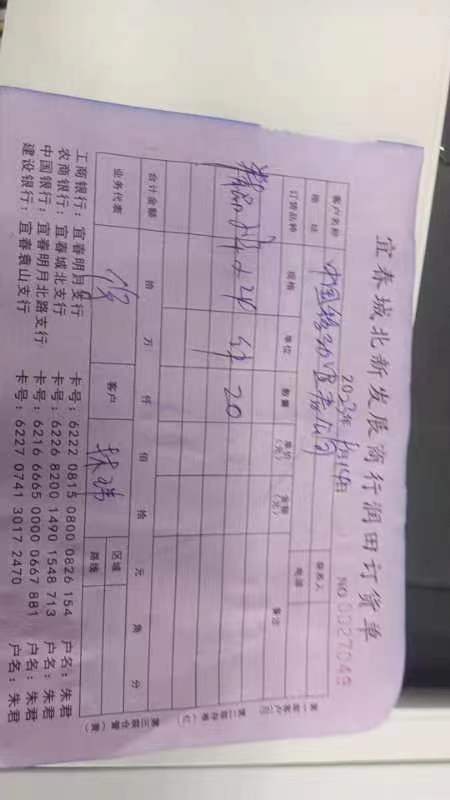 宜春城北新发展商行润田订货单
2023年 月14日
NO 0027049
客户名称 中国移动宜春公司 联系人
地址 电话
订货品种 规格 单位 数量 单价(元) 金额(元) 备注
24 20
合计金额 拾 万 仟 佰 拾 元 角 分
业务代表 客户 林 区域 路线
工商银行：宜春明月支行 卡号：6222 0815 0800 0826 154 户名：朱君
农商银行：宜春城北支行 卡号：6226 8200 1490 1548 713 户名：朱君
中国银行：宜春明月北路支行 卡号：6216 6665 0000 0667 881 户名：朱君
建设银行：宜春袁山支行 卡号：6227 0741 3017 2470 户名：朱君